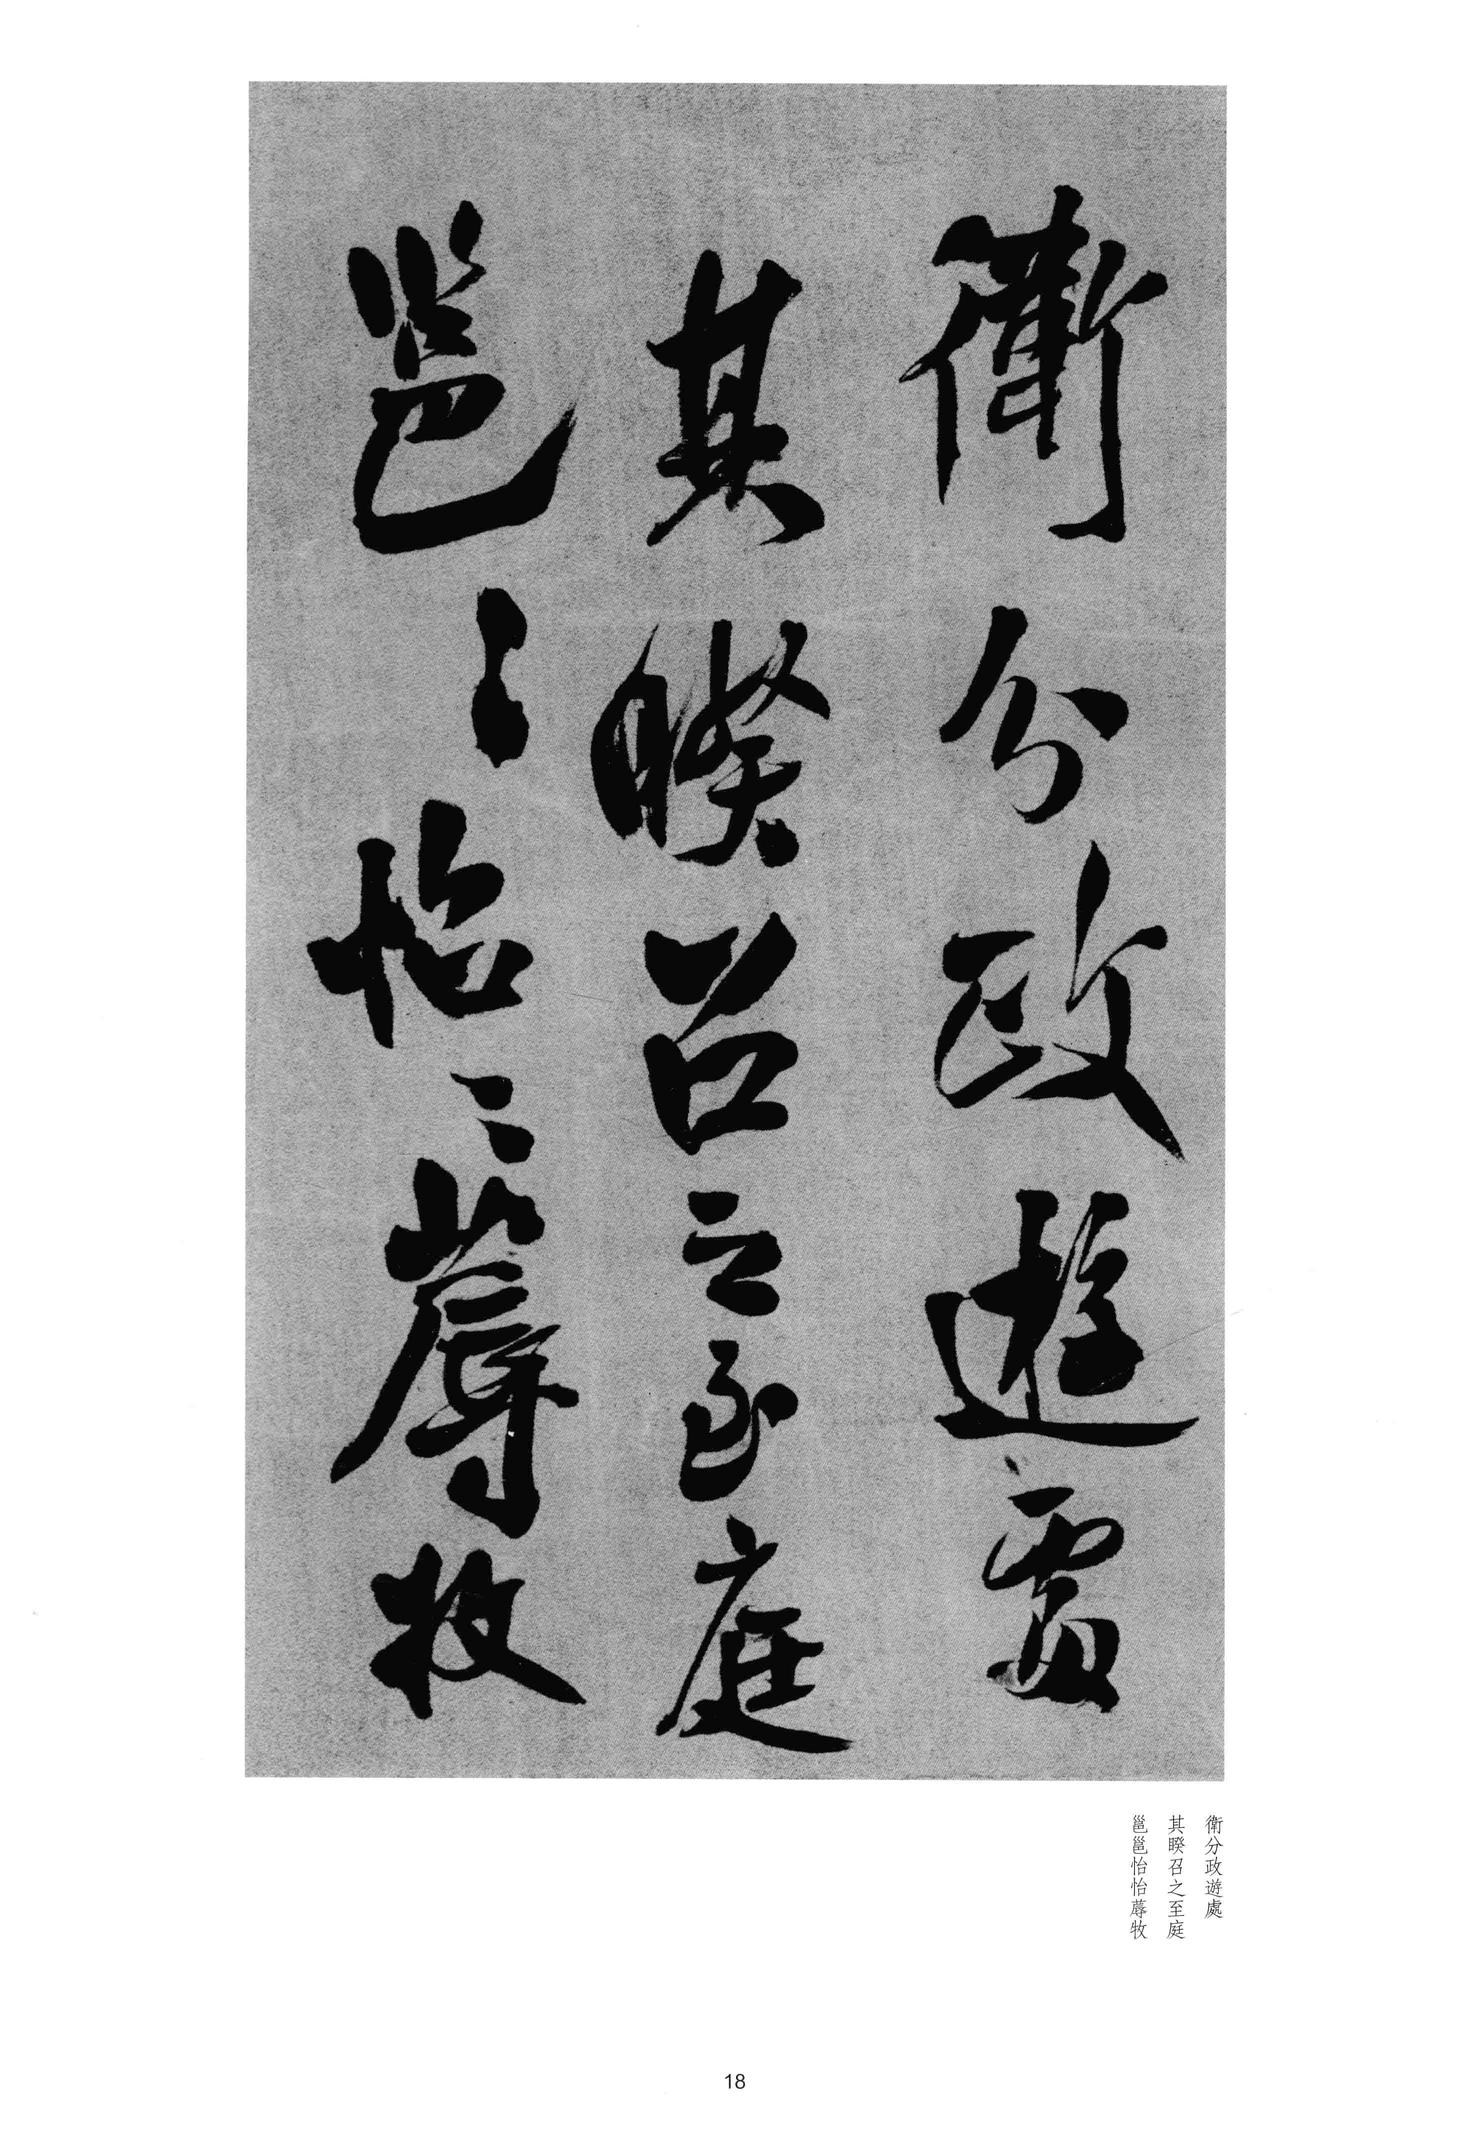 衛分政遊處
其睽召之至庭
邕〻怡〻蓐牧
衛分政遊處
其睽召之至庭
邕邕怡怡蓐牧
18